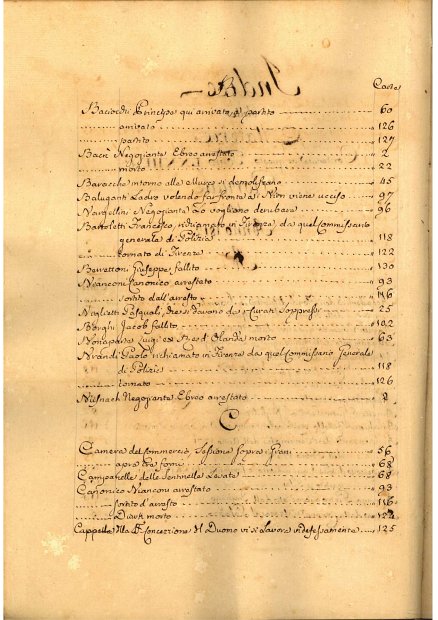 Carte
Baciocchi Principe qui arrivato, e partito 60
arrivato 126
partito 127
Bacri Negoziante Ebreo arrestato 2
morto 22
Baracche intorno alle Mura si demoliscano 45
Ladro volendo far fronte viene ucciso 97
Negoziante vogliano derubare 96
Bartoletti Francesco richiamato in Firenze da quel Commissario
generale di Polizia 118
tornato di Firenze 122
Berrettoni Giuseppe fallito 130
Bianconi Canonico arrestato 93
sortito dall'arresto 116
Pasquale, uno de Curati Soppressi 25
Borghi Jacob fallito 102
Bonaparte Luigi ex Re d'Olanda morto 63
Paolo richiamato in Firenze da quel Commissario Generale
di Polizia 118
tornato 126
Negoziante Ebreo arrestato 2
C
Camera del Commercio, Sessione sopra i Grani 56
apre tre forni 68
Campanelle delle Sentinelle Levate 68
Canonico Bianconi arrestato 93
sortito d'arresto 116
morto
Cappella della SS. Concezione il Duomo vi si Lavora indefessamente 125